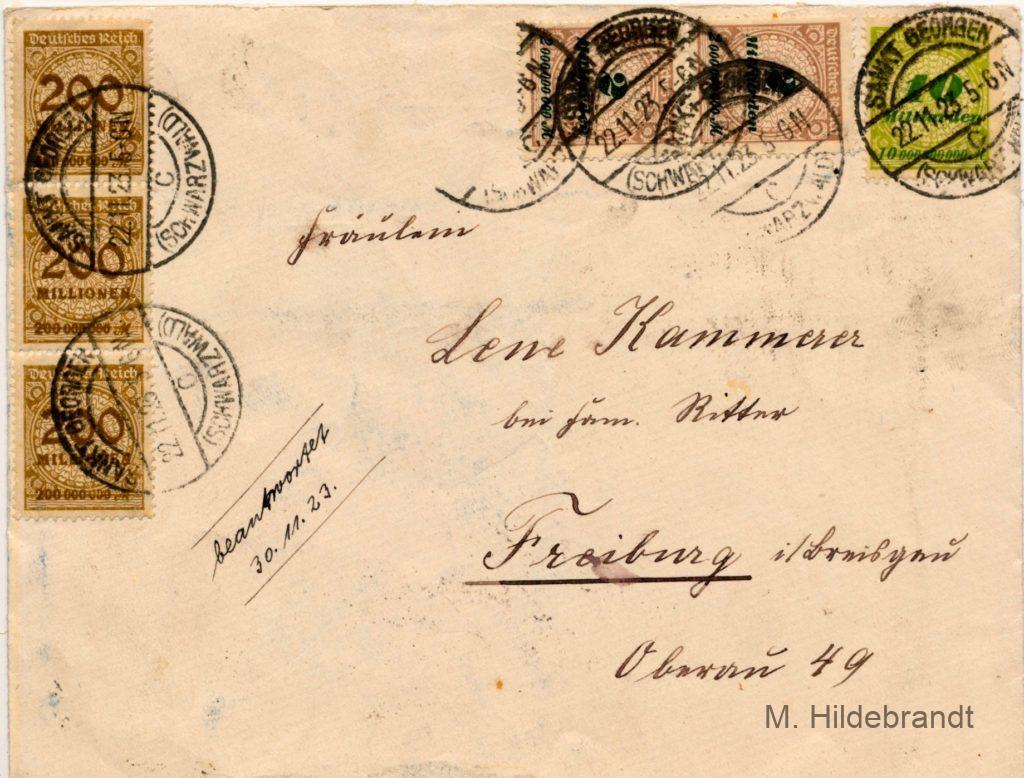 Deutsches Reich
200
200 000 000 M
Deutsches Reich
200
MILLIONEN
200 000 000 M
Deutsches Reich
200
MILLIONEN
200 000 000 M
SANKT GEORGEN
22.11.23.5-6N
C
(SCHWARZWALD)
SANKT GEORGEN
C
(SCHWARZWALD)
2
Deutsches Reich
SANKT GEORGEN
22.11.23.5-6N
C
10
Milliarden
10 000 000 000 M
SANKT GEORGEN
22.11.23.5-6N
C
Fräulein
Lene Kammerer
bei Fam. Ritter
Freiburg i/Breisgau
Oberau 49
beantwortet
30.11.23.
M. Hildebrandt